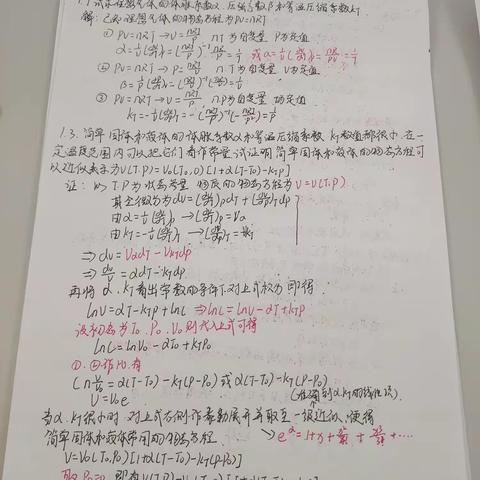 1.1 试求理想气体的体胀系数α、压强系数β和等温压缩系数κT
解：已知理想气体的物态方程为PV=nRT
① PV=nRT → V=nRT/P n.T为自变量 P为定值
② PV=nRT → P=nRT/V n.T为自变量 V为定值
③ PV=nRT → V=nRT/P n.P为自变量
1.3. 简单固体和液体的体胀系数α和等温压缩系数κT数值都很小.在一
定温度范围内可以把α和κT看作常量.试证明简单固体和液体的物态方程可
以近似表示为V(T.P)=V₀(T₀,0)[1+α(T-T₀)-κTP]
证：以T.P为状态参量 物质的物态方程为V=V(T.P)
其全微分为dV=(∂V/∂T)P dT+(∂V/∂P)T dP
由α=1/V(∂V/∂T)P → (∂V/∂T)P=Vα
由κT=-1/V(∂V/∂P)T → (∂V/∂P)T=-VκT
⇒ dV=VαdT-VκTdP
⇒ dV/V=αdT-κTdP
再将α.κT看出常数的条件下.对上式积分即得
lnV=αT-κTP+lnC ⇒ lnC=lnV-αT+κTP
设初态为T₀.P₀.V₀则代入上式可得
lnC=lnV₀-αT₀+κTP₀
①.②作比.有
ln V/V₀=α(T-T₀)-κT(P-P₀) 或α(T-T₀)-κT(P-P₀)
当α.κT很小时.对上式右侧作泰勒展开并取至一级近似.便得
简单固体和液体常用的物态方程 ⇒ eˣ=1+x+x²/2!+x³/3!+....
V=V₀(T₀.P₀)[1+α(T-T₀)-κT(P-P₀)]